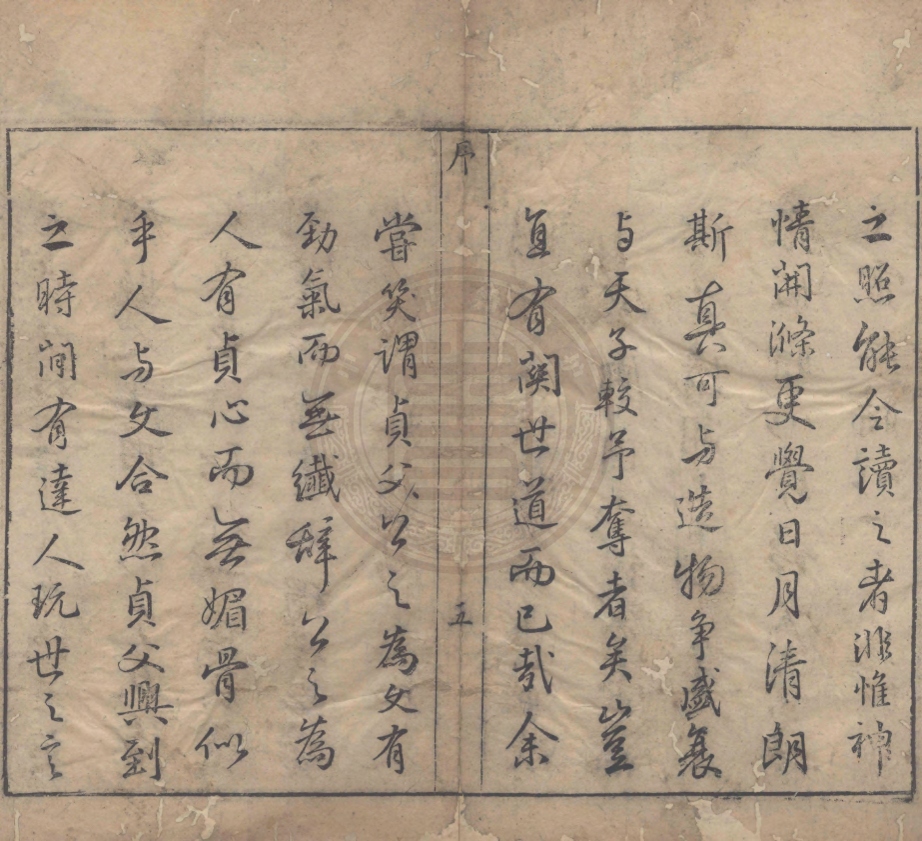 之照能令讀之者非惟神
情開滌更覺日月清朗
斯真可与造物争盛衰
与天子較予奪者矣豈
直有関世道而已哉余
序
五
嘗笑謂貞父公之為文有
勁氣而無纖辞公之為
人有貞心而無媚骨似
乎人与文合然貞父興到
之時間有達人玩世之言